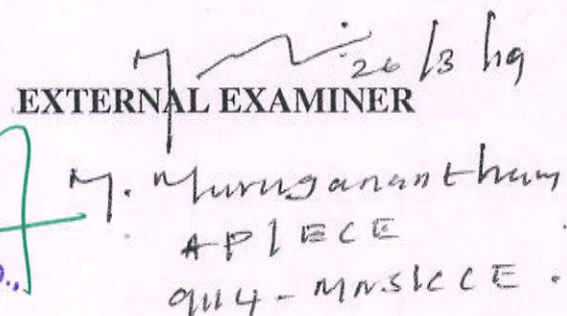 26/3/19
EXTERNAL EXAMINER
M. Muruganantham
AP/ECE
9114 - MNSKCCE.